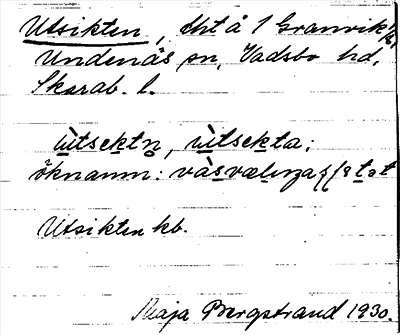 Utsikten, tht å 1 Granvik
Undenäs sn, Vadsbo hd,
Skarab. l.
ùtsektn̥, ùtsekta;
öknamn:
Utsikten kb.
Maja Bergstrand 1930.